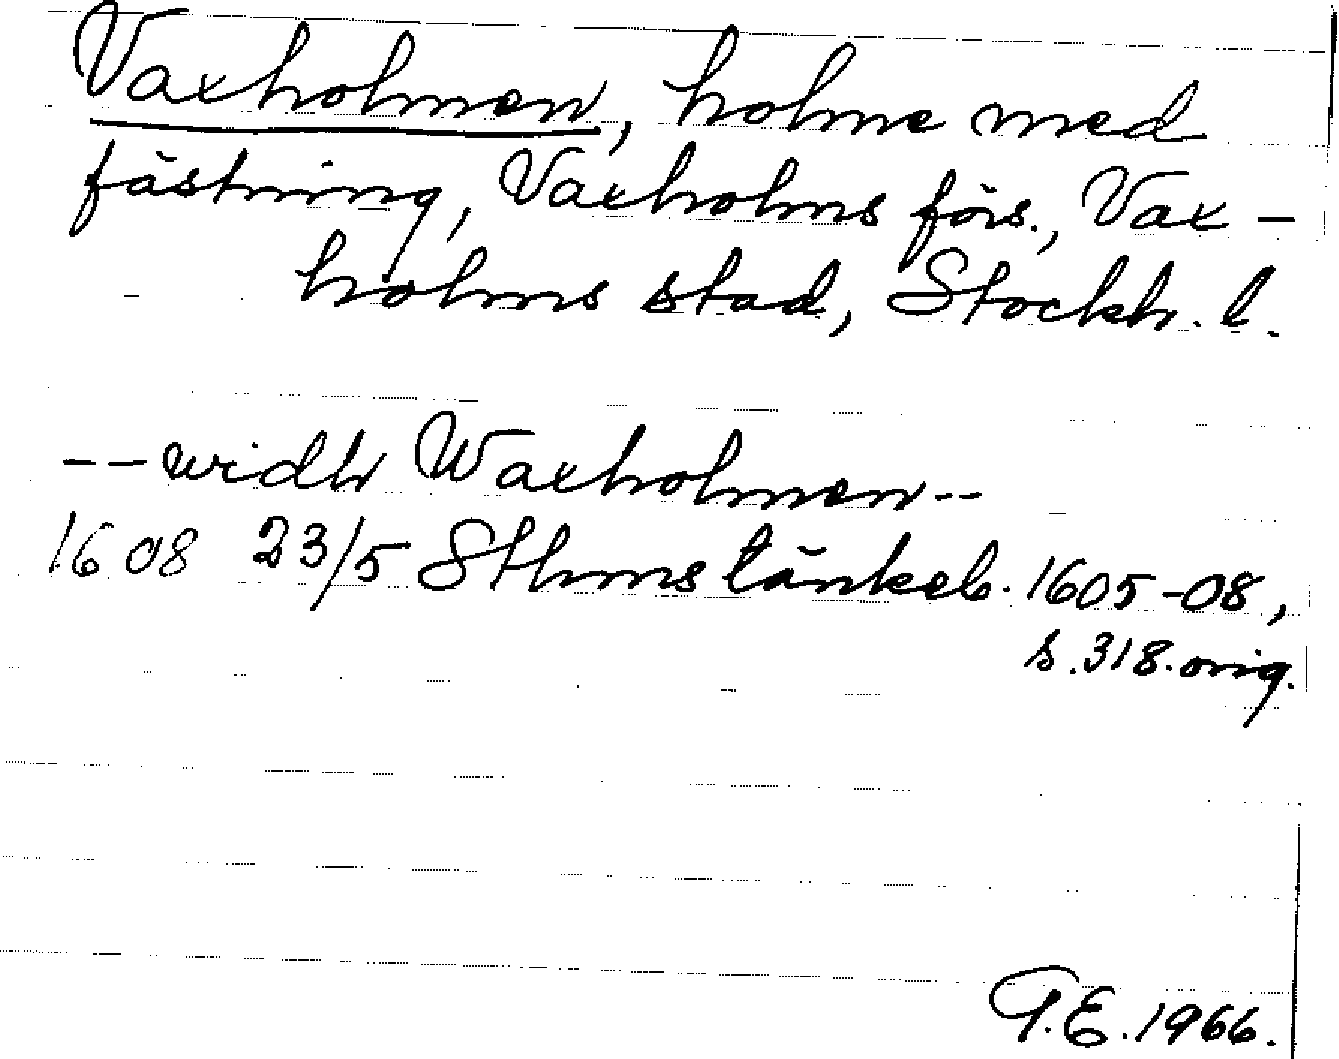 Vaxholmen, holme med
fästning, Vaxholms förs., Vax-
holms stad, Stockh. l.
--widh Waxholmen--
1608 23/5 Sthms tänkeb. 1605-08,
s. 318. orig.
T.E. 1966.